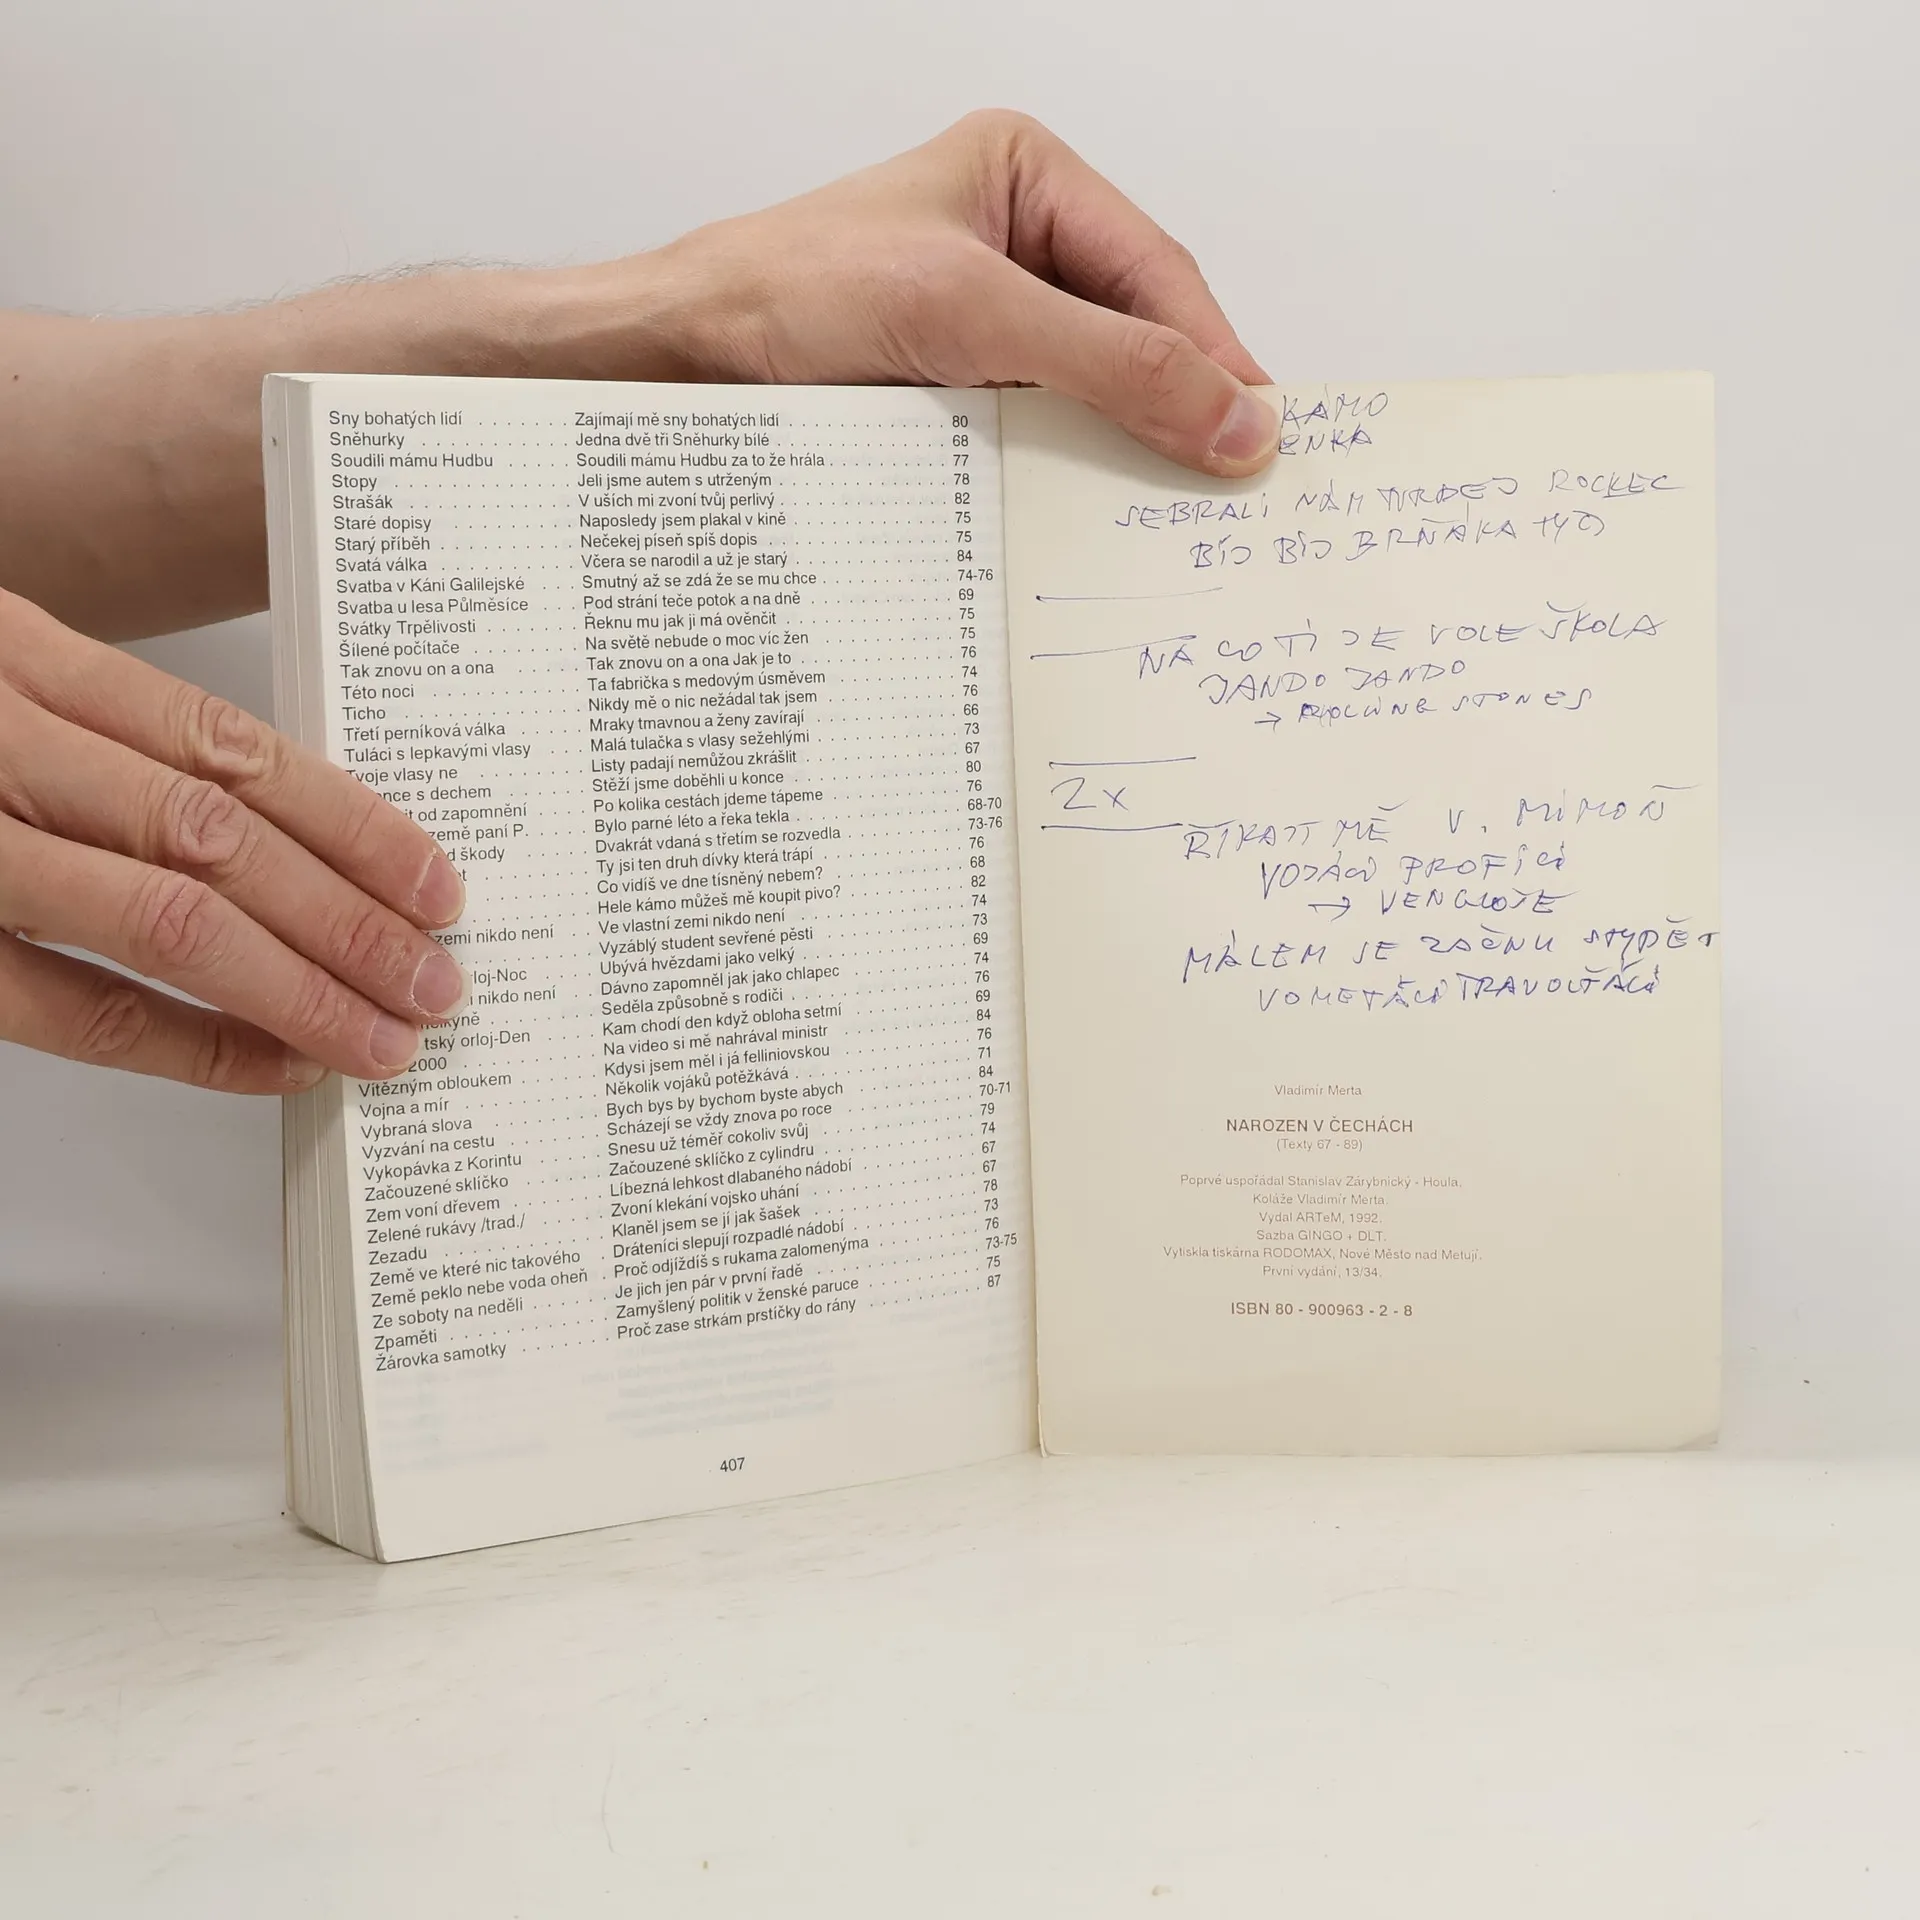 Sny bohatých lidí . . . . . . . Zajímají mě sny bohatých lidí . . . . . . . . . . . . . 80
Sněhurky . . . . . . . . . . Jedna dvě tři Sněhurky bílé . . . . . . . . . . . . . 68
Soudili mámu Hudbu . . . . . Soudili mámu Hudbu za to že hrála . . . . . . . . . 77
Stopy . . . . . . . . . . . . Jeli jsme autem s utrženým . . . . . . . . . . . . . 78
Strašák . . . . . . . . . . . V uších mi zvoní tvůj perlivý . . . . . . . . . . . . . 82
Staré dopisy . . . . . . . . Naposledy jsem plakal v kině . . . . . . . . . . . . 75
Starý příběh . . . . . . . . . Nečekej píseň spíš dopis . . . . . . . . . . . . . . 75
Svatá válka . . . . . . . . . Včera se narodil a už je starý . . . . . . . . . . . . 84
Svatba v Káni Galilejské . . . Smutný až se zdá že se mu chce . . . . . . . . . . 74-76
Svatba u lesa Půlměsíce . . . Pod strání teče potok a na dně . . . . . . . . . . . 69
Svátky Trpělivosti . . . . . . Řeknu mu jak ji má ověnčit . . . . . . . . . . . . . 75
Šílené počítače . . . . . . . . Na světě nebude o moc víc žen . . . . . . . . . . . 75
Tak znovu on a ona . . . . . Tak znovu on a ona Jak je to . . . . . . . . . . . . 76
Této noci . . . . . . . . . . Ta fabrička s medovým úsměvem . . . . . . . . . . 74
Ticho . . . . . . . . . . . . Nikdy mě o nic nežádal tak jsem . . . . . . . . . . 76
Třetí perníková válka . . . . . Mraky tmavnou a ženy zavírají . . . . . . . . . . . 66
Tuláci s lepkavými vlasy . . . Malá tulačka s vlasy sežehlými . . . . . . . . . . . 73
Tvoje vlasy ne . . . . . . . . Listy padají nemůžou zkrášlit . . . . . . . . . . . . 67
s dechem . . . . . . . Stěží jsme doběhli u konce . . . . . . . . . . . . . 80
od zapomnění . . . . Po kolika cestách jdeme tápeme . . . . . . . . . . 76
země paní P. . . . . . Bylo parné léto a řeka tekla . . . . . . . . . . . . 68-70
škody . . . . . Dvakrát vdaná s třetím se rozvedla . . . . . . . . . 73-76
. . . . . . . Ty jsi ten druh dívky která trápí . . . . . . . . . . . 76
. . . . . . . Co vidíš ve dne tísněný nebem? . . . . . . . . . . . 68
. . . . . . . Hele kámo můžeš mě koupit pivo? . . . . . . . . . . 82
zemi nikdo není . . Ve vlastní zemi nikdo není . . . . . . . . . . . . . 74
. . . . . . . Vyzáblý student sevřené pěsti . . . . . . . . . . . . 73
rloj-Noc . . . . Ubývá hvězdami jako velký . . . . . . . . . . . . . 69
nikdo není . . Dávno zapomněl jak jako chlapec . . . . . . . . . . 74
. . . . . . . Seděla způsobně s rodiči . . . . . . . . . . . . . . 76
tský orloj-Den . . . . Kam chodí den když obloha setmí . . . . . . . . . . 69
2000 . . . . . . . . . . Na video si mě nahrával ministr . . . . . . . . . . . 84
Vítězným obloukem . . . . . . Kdysi jsem měl i já felliniovskou . . . . . . . . . . 76
Vojna a mír . . . . . . . . . Několik vojáků potěžkává . . . . . . . . . . . . . . 71
Vybraná slova . . . . . . . . Bych bys by bychom byste abych . . . . . . . . . . 84
Vyzvání na cestu . . . . . . . Scházejí se vždy znova po roce . . . . . . . . . . . 70-71
Vykopávka z Korintu . . . . . Snesu už téměř cokoliv svůj . . . . . . . . . . . . . 79
Začouzené sklíčko . . . . . . Začouzené sklíčko z cylindru . . . . . . . . . . . . 74
Zem voní dřevem . . . . . . . Líbezná lehkost dlabaného nádobí . . . . . . . . . . 67
Zelené rukávy /trad./ . . . . . Zvoní klekání vojsko uhání . . . . . . . . . . . . . 67
Zezadu . . . . . . . . . . . Klaněl jsem se jí jak šašek . . . . . . . . . . . . . 78
Země ve které nic takového . Dráteníci slepují rozpadlé nádobí . . . . . . . . . . 73
Země peklo nebe voda oheň . Proč odjíždíš s rukama zalomenýma . . . . . . . . . 76
Ze soboty na neděli . . . . . . Je jich jen pár v první řadě . . . . . . . . . . . . . 73-75
Zpaměti . . . . . . . . . . . Zamyšlený politik v ženské paruce . . . . . . . . . 75
Žárovka samotky . . . . . . . Proč zase strkám prstíčky do rány . . . . . . . . . 87
407
KÁMO
ENKA
SEBRALI NÁM TVRDEJ ROCKEC
BÍJ BÍJ BRŇÁKA TYJ
NA CO TI JE VOLE ŠKOLA
JANDO JANDO
→ ROLLING STONES
2x
ŘÍKAJÍ MĚ V. MIMOŇ
VOJÁCI PROFÍCI
→ VENCLOTE
MÁLEM SE ZAČNU STYDĚT
VOMETÁCI TRAVOLŤÁCI
Vladimír Merta
NAROZEN V ČECHÁCH
(Texty 67 - 89)
Poprvé uspořádal Stanislav Zárybnický - Houla.
Koláže Vladimír Merta.
Vydal ARTeM, 1992.
Sazba GINGO + DLT.
Vytiskla tiskárna RODOMAX, Nové Město nad Metují.
První vydání, 13/34.
ISBN 80 - 900963 - 2 - 8